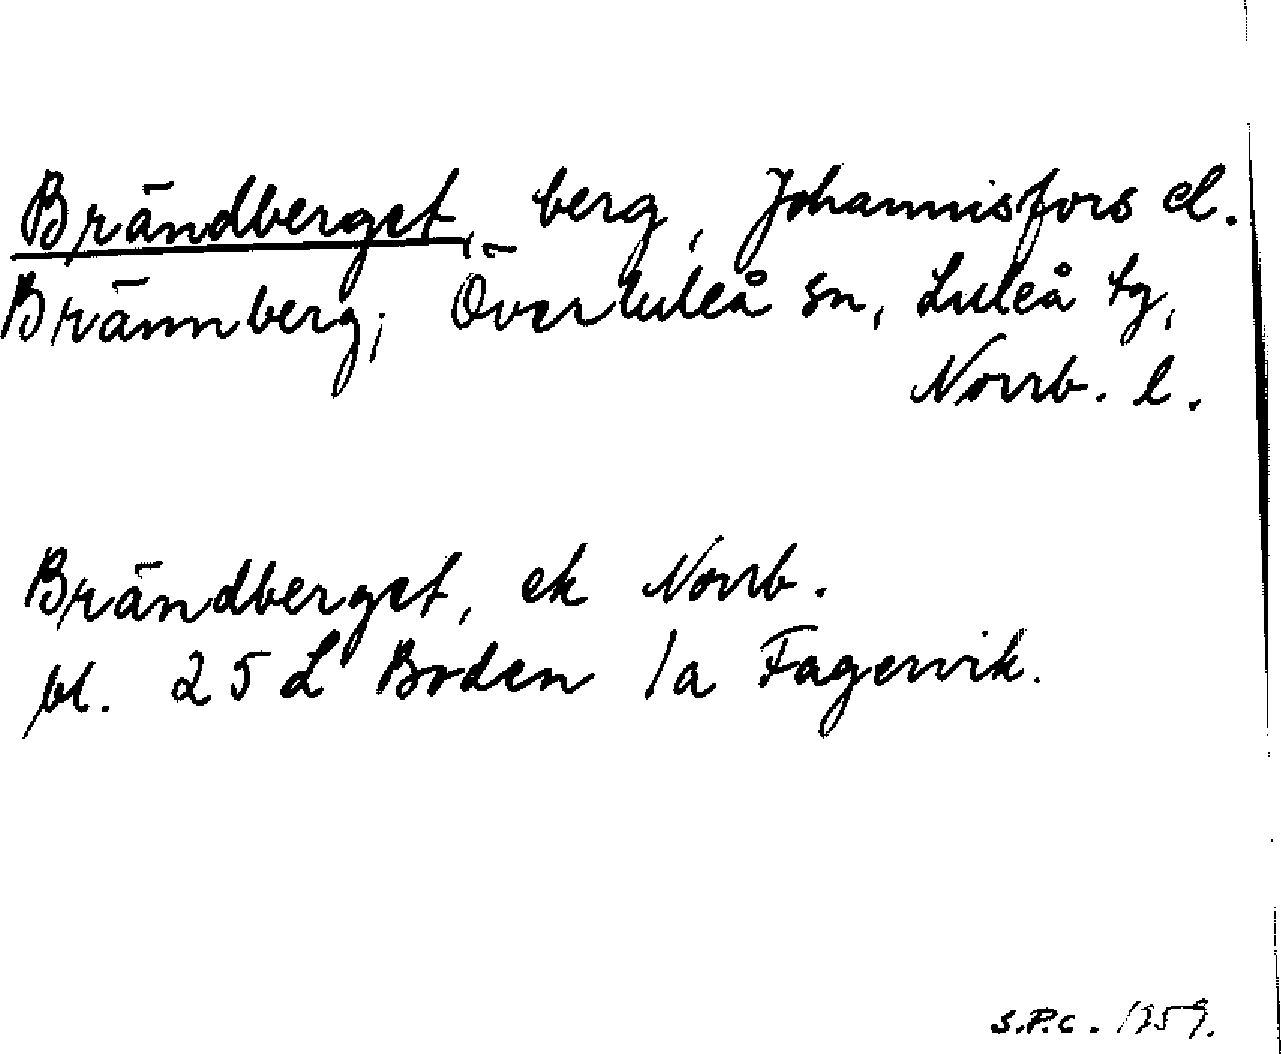 Brändberget, berg, Johannisfors el.
Brännberg, Överluleå sn, Luleå tg,
Norrb. l.
Brändberget, ek Norrb.
bl. 25 L Boden 1a Fagervik.
S.P.C. 1959.